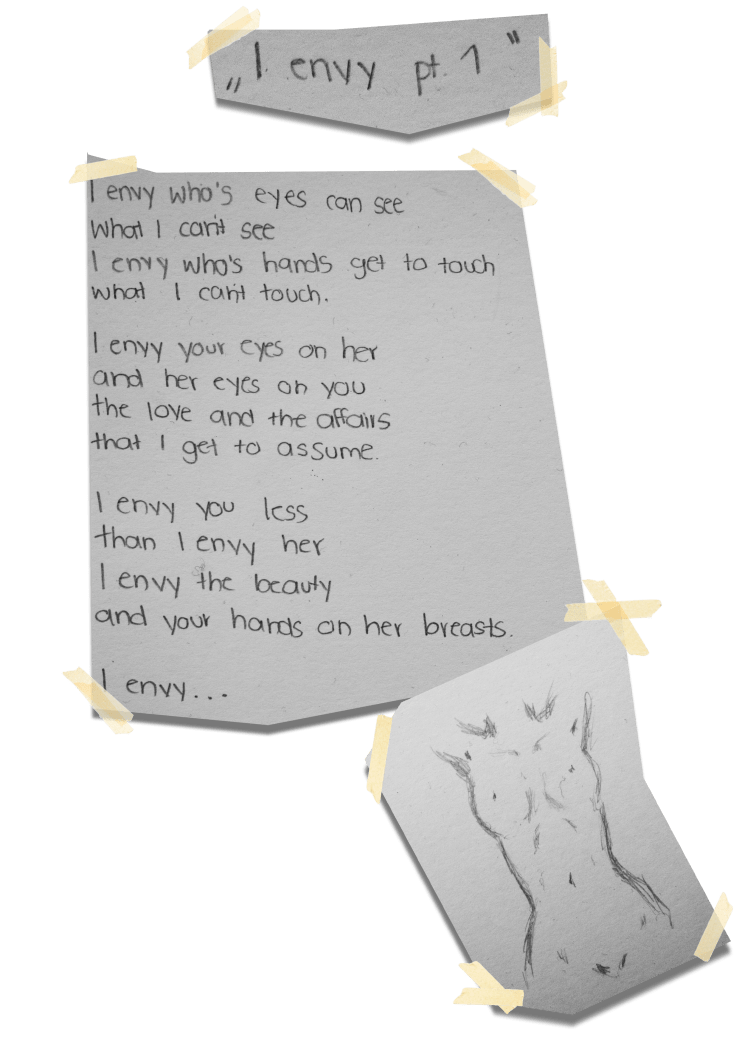 „I envy pt. 1"
I envy who's eyes can see
what I can't see
I envy who's hands get to touch
what I can't touch.
I envy your eyes on her
and her eyes on you
the love and the affairs
that I get to assume.
I envy you less
than I envy her
I envy the beauty
and your hands on her breasts.
I envy...